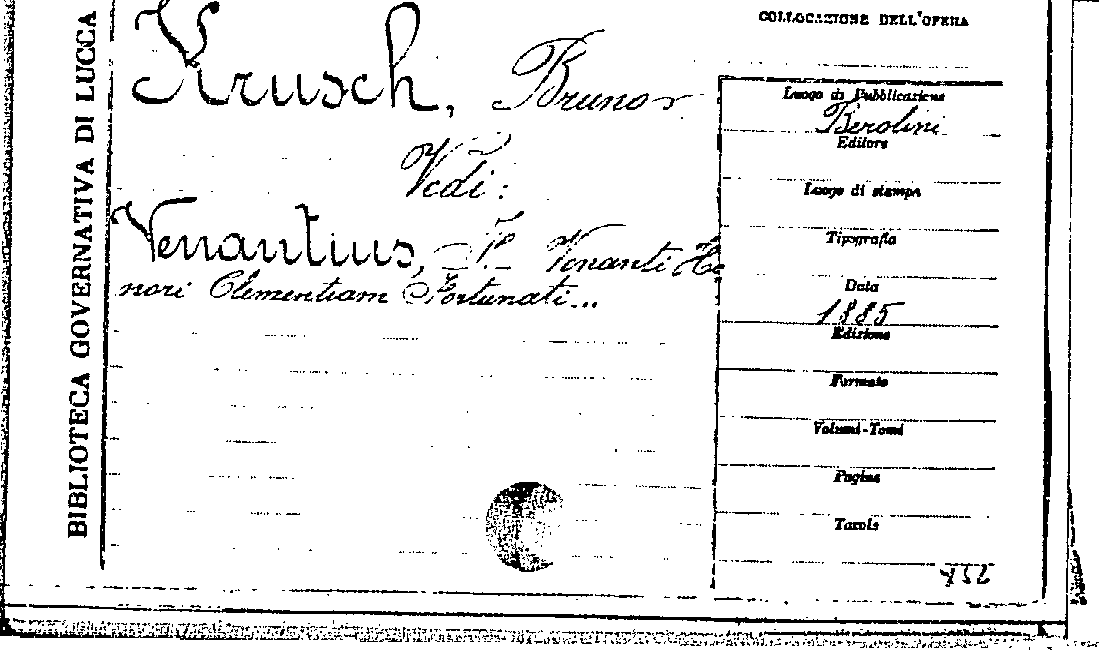 BIBLIOTECA GOVERNATIVA DI LUCCA
COLLOCAZIONE DELL'OPERA
Krusch, Bruno
Vedi:
Venantius, S. Venanti Ho
nori Clementiam Fortunati...
Luogo di Pubblicazione
Berolini
Editore
Luogo di stampa
Tipografia
Data
1885
Edizione
Formato
Volumi-Tomi
Pagine
Tavole
752